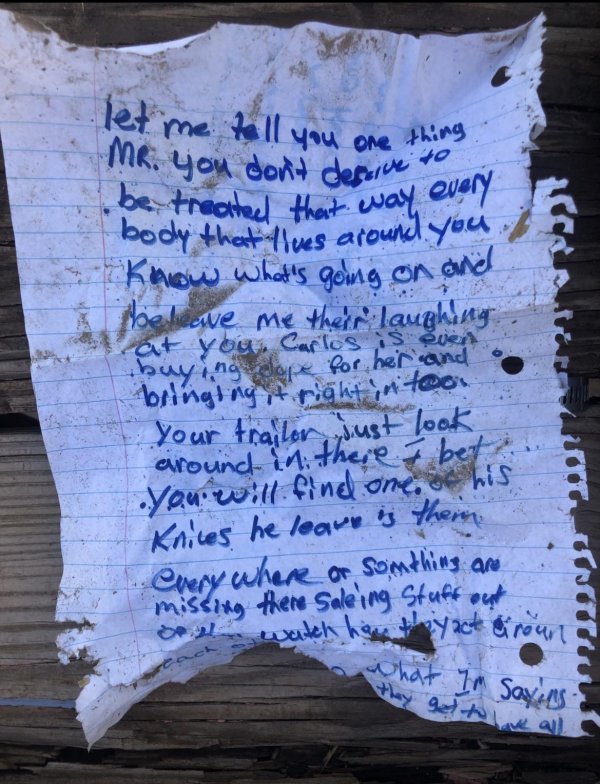 let me tell you one thing
MR. you don't deserve to
be treated that way every
body that lives around you
Know what's going on and
beleave me their laughing
at you Carlos is even
buying dope for her and
bringing it right in too.
your trailor just look
around in there I bet
you will find one of his
Knives he leave's them
every where or somthing are
missing there saleing stuff out
watch how they act aroun
each
what Im saying
they got to all